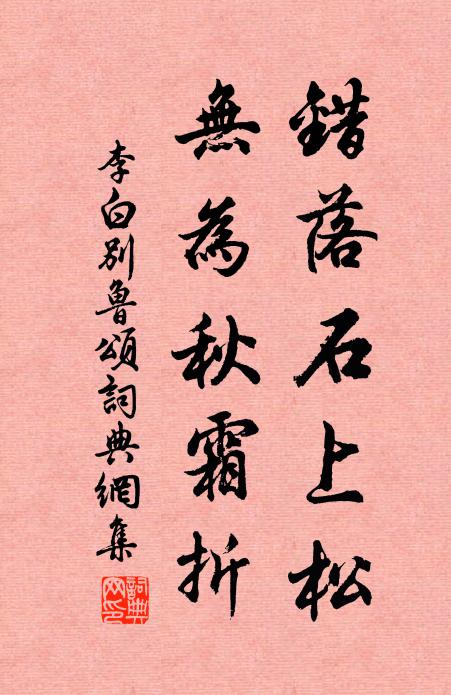 錯落石上松
無為秋霜折
李白別魯頌詞典網集
詞典网印